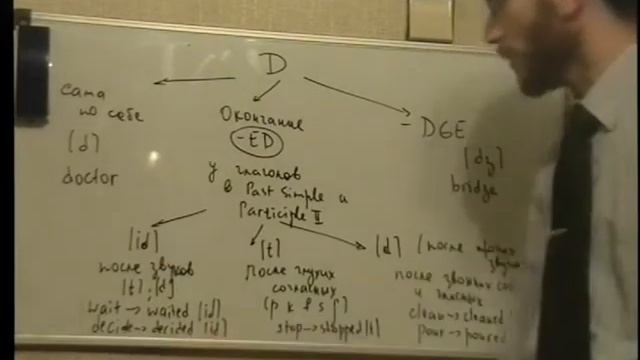 D
сама
по себе
[d]
doctor
Окончание
-ED
у глаголов
в Past Simple и
Participle II
- DGE
[dʒ]
bridge
[id]
после звуков
[t], [d]
wait → waited [id]
decide → decided [id]
[t]
после глухих
согласных
(p k f s ʃ)
stop → stopped [t]
[d] (после
после звонких
и гласных
clean → cleaned
pour → poured